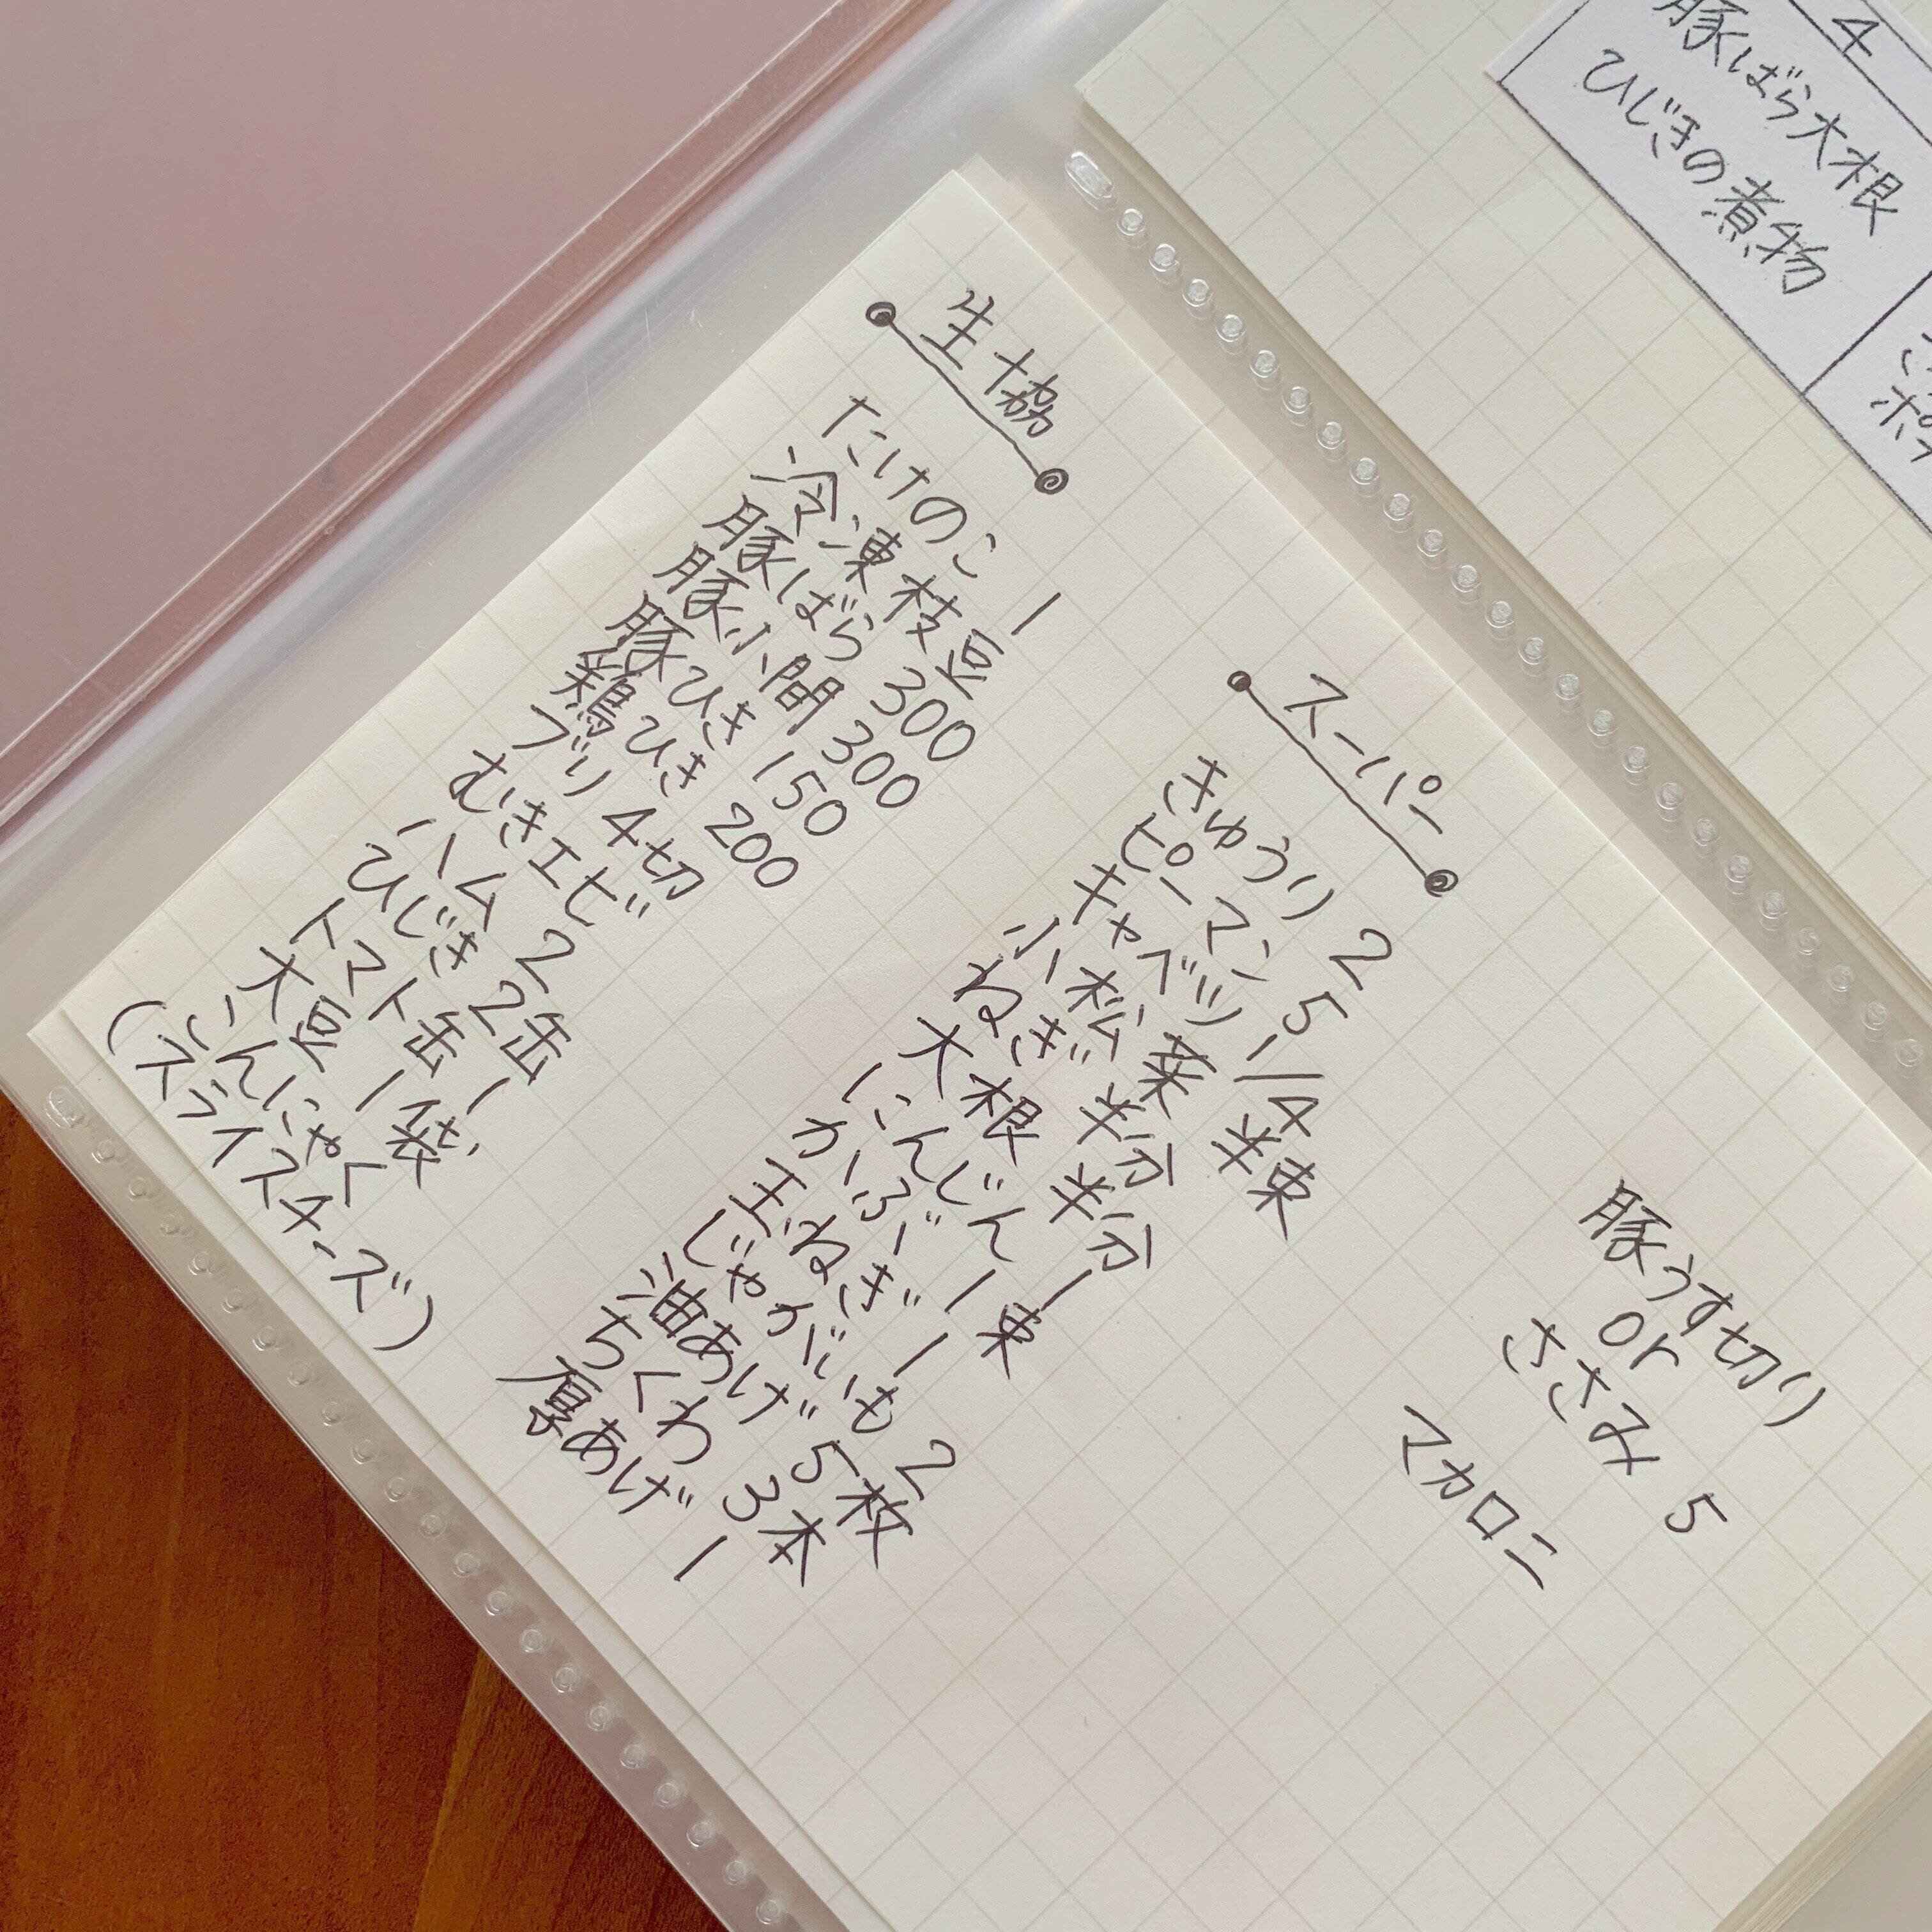 生協
たけのこ 1
冷凍枝豆
豚ばら 300
豚小間 300
豚ひき 150
鶏ひき 200
ブリ 4切
むきエビ
ハム 2
ひじき 2缶
トマト缶 1
大豆 1袋
こんにゃく
(スライスチーズ)
スーパー
きゅうり 2
ピーマン 5
キャベツ 1/4
小松菜 半束
ねぎ 半分
大根 半分
にんじん 1
かぶ 1束
玉ねぎ 1
じゃがいも 2
油あげ 5枚
ちくわ 3本
厚あげ 1
豚うす切り
or
ささみ 5
マカロニ
4
豚ばら大根
ひじきの煮物